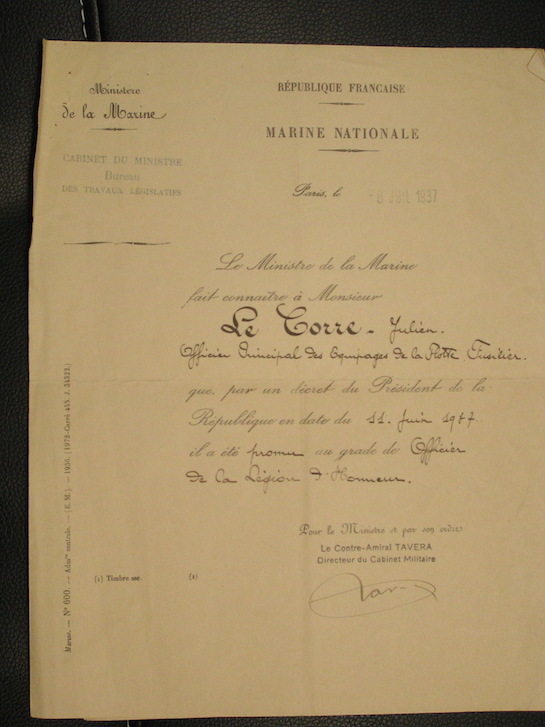 Ministère
de la Marine
CABINET DU MINISTRE
Bureau
DES TRAVAUX LÉGISLATIFS
RÉPUBLIQUE FRANÇAISE
MARINE NATIONALE
Paris, le -8 JUIL 1937
Le Ministre de la Marine
fait connaître à Monsieur
Le Corre - Julien.
Officier Principal des Equipages de la Flotte Fusilier.
que, par un décret du Président de la
République en date du 11 Juin 1937.
il a été promu au grade de Officier
de la Légion d'Honneur.
Pour le Ministre et par son ordre
Le Contre-Amiral TAVERA
Directeur du Cabinet Militaire
(1) Timbre sec (1)
Marine. — N° 600. — Adm^on centrale. — (E. M.) — 1936. [1972-Carré 455. J. 34323.]